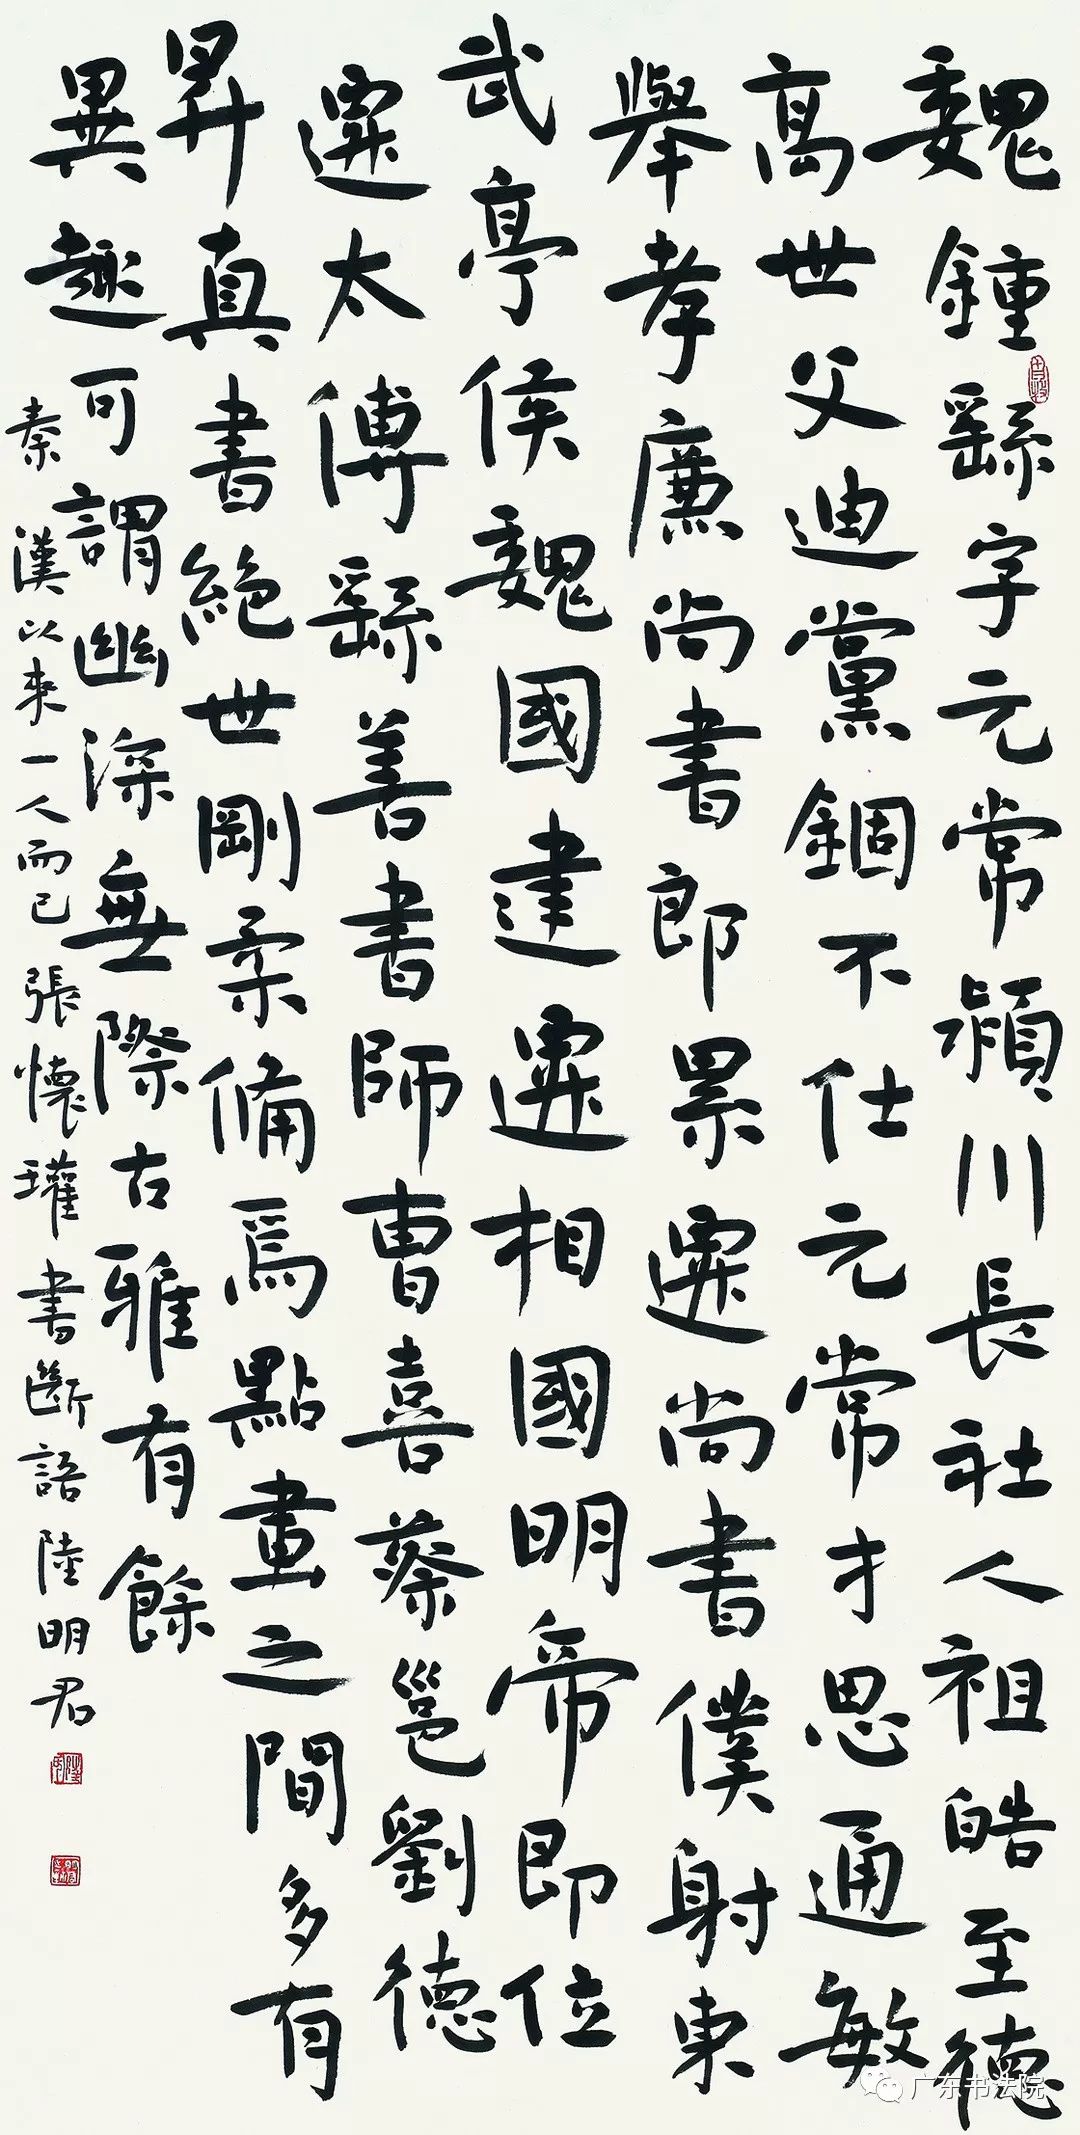 魏鍾繇字元常潁川長社人祖皓至德
高世父迪黨錮不仕元常才思通敏
舉孝廉尚書郎累遷尚書僕射東
武亭侯魏國建遷相國明帝即位
遷太傅繇善書師曹喜蔡邕劉德
昇真書絕世剛柔備焉點畫之間多有
異趣可謂幽深無際古雅有餘
秦漢以來一人而已張懷瓘書斷語陸明君
广东书法院